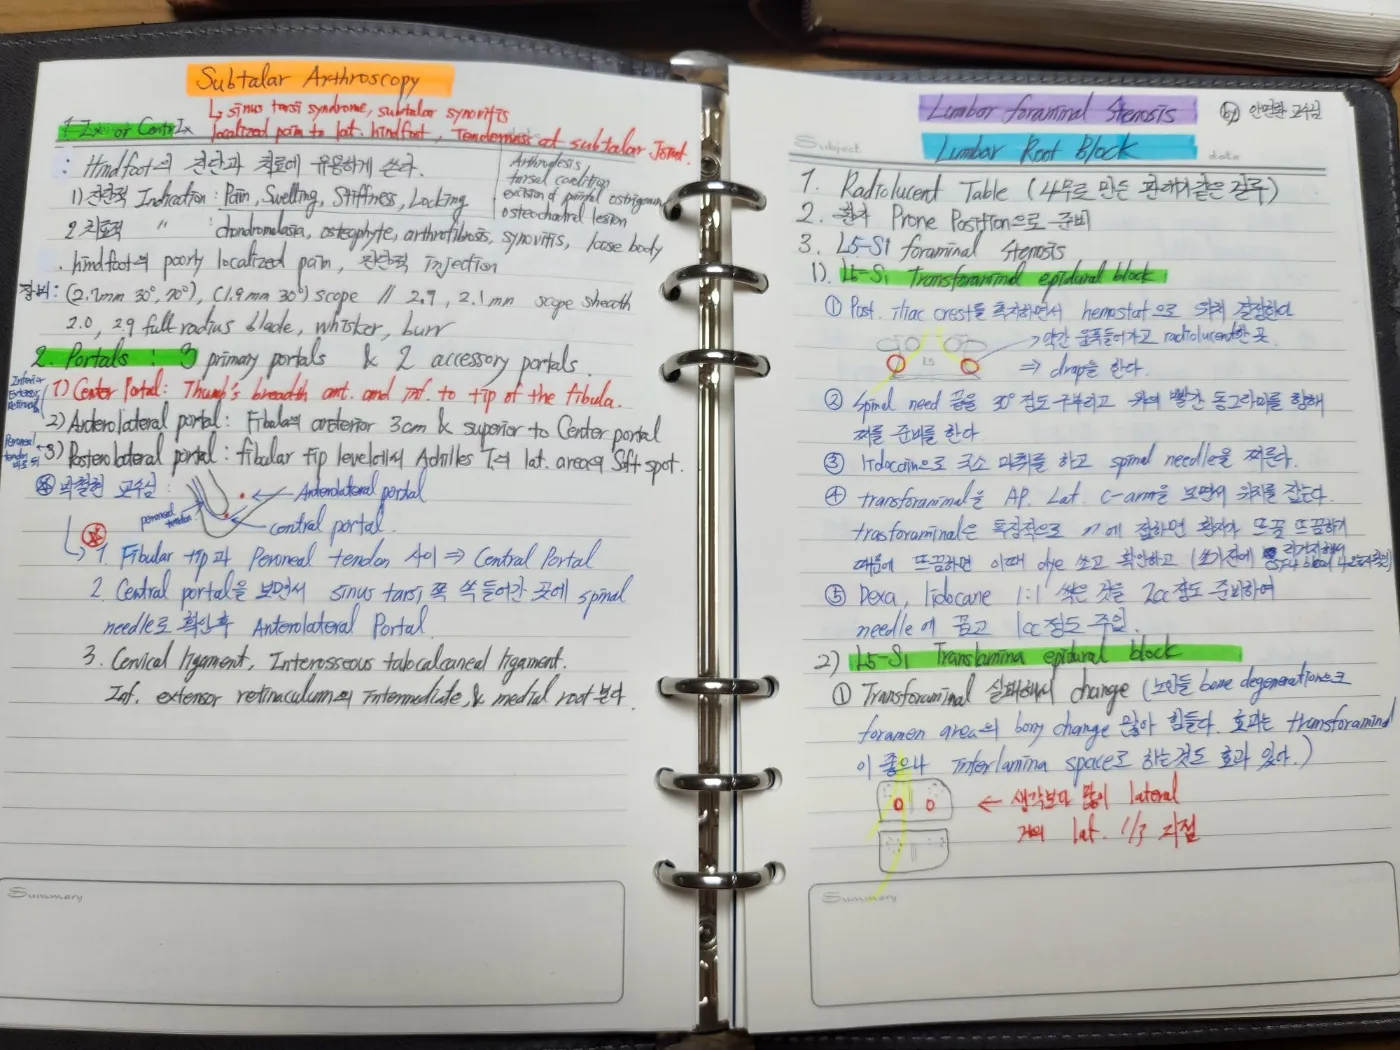 Subtalar Arthroscopy
↳ sinus tarsi syndrome, subtalar synovitis
localized pain to lat. hindfoot, Tenderness at subtalar Joint.
1. Ix or Contr Ix
: Hindfoot의 진단과 치료에 유용하게 쓴다.
1) 진단적 Indication : Pain, Swelling, Stiffness, Locking
2) 치료적 〃 : chondromalasia, osteophyte, arthrofibrosis, synovitis, loose body
Arthrodesis
tarsal coalition
excision of painful os trigonum
osteochondral lesion
. hindfoot의 poorly localized pain, 진단적 injection
장비 : (2.7mm 30°, 70°), (1.9mm 30°) scope // 2.9, 2.1mm scope sheath
2.0, 2.9 full radius blade, whisker, burr
2. Portals : 3 primary portals & 2 accessory portals.
Inferior Extensor Retinaculum
1) Center Portal : Thumb's breadth ant. and inf. to tip of the fibula.
2) Anterolateral portal : Fibula의 anterior 3cm & superior to Center portal
Peroneal tendon
3) Posterolateral portal : fibular tip level에서 Achilles T의 lat. area의 Soft spot.
※ 박철현 교수님 :
Anterolateral portal
peroneal tendon
central portal.
1. Fibular tip과 Peroneal tendon 사이 ⇒ Central Portal
2. Central portal을 보면서 sinus tarsi 쪽 쏙 들어간 곳에 spinal
needle로 확인후 Anterolateral Portal.
3. Cervical ligament, Interosseous talocalcaneal ligament.
Inf. extensor retinaculum의 intermediate & medial root 본다.
Summary
Lumbar foraminal Stenosis
by 안면환 교수님
Subject
Lumbar Root Block
date
1. Radiolucent Table (4무로 만든 판때기같은 걸루)
2. 환자 Prone Position으로 준비
3. L5-S1 foraminal stenosis
1). L5-S1 Transforaminal epidural block
① Post. iliac crest를 촉지하면서 hemostat으로 위치 결정한다
→ 약간 움푹들어가고 radiolucent한 곳.
L5
⇒ drop을 한다.
② Spinal need 끝을 30° 정도 구부리고 위의 빨간 동그라미를 향해
찌를 준비를 한다
③ lidocain으로 국소 마취를 하고 spinal needle을 찌른다.
④ transforaminal을 AP. Lat. C-arm을 보면서 위치를 잡는다.
trasforaminal은 특징적으로 n에 접하면 환자가 뜨끔 뜨끔하기
때문에 뜨끔하면 이때 dye 쏘고 확인하고
⑤ Dexa, lidocane 1:1 섞은 것을 2cc 정도 준비하여
needle에 꼽고 1cc 정도 주입.
2) L5-S1 Translamina epidural block
① Transforaminal 실패해서 change (노인들 bone degeneration으로
foramen area의 bony change 많아 힘들다. 효과는 transforaminal
이 좋으나 interlamina space로 하는것도 효과 있다.)
← 생각보다 많이 lateral
거의 lat. 1/3 지점
Summary